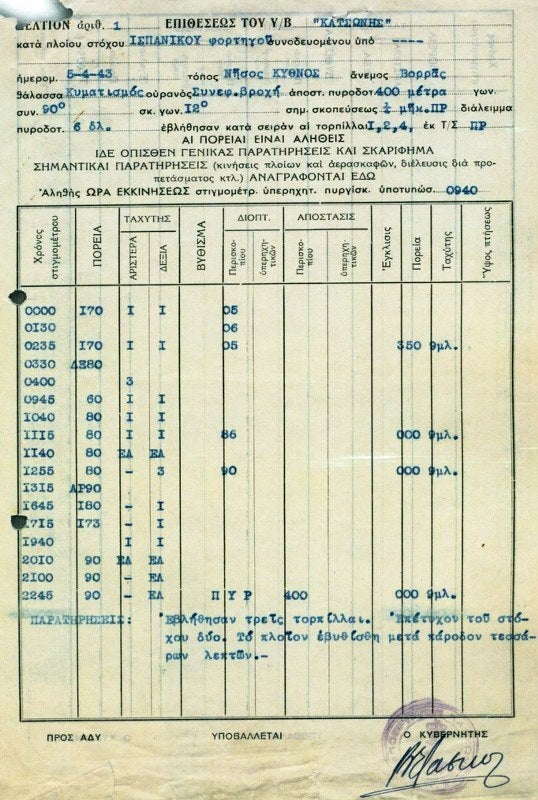 ΔΕΛΤΙΟΝ ἀριθ. 1 ΕΠΙΘΕΣΕΩΣ ΤΟΥ Υ/Β "ΚΑΤΣΩΝΗΣ"
κατά πλοίου στόχου ΙΣΠΑΝΙΚΟΥ φορτηγοῦ συνοδευομένου ὑπό ----
ἡμερομ. 5-4-43 τόπος Νῆσος ΚΥΘΝΟΣ ἄνεμος Βορρᾶς
θάλασσα Κυματισμός οὐρανός Συνεφ.βροχή ἀποστ. πυροδοτ. 400 μέτρα γων.
συν. 90° σκ. γων. Ι2° σημ. σκοπεύσεως ½ μῆκ.ΠΡ διάλειμμα
πυροδοτ. 6 δλ. ἐβλήθησαν κατά σειράν αἱ τορπίλλαι Ι,2,4, ἐκ Τ/Σ ΠΡ
ΑΙ ΠΟΡΕΙΑΙ ΕΙΝΑΙ ΑΛΗΘΕΙΣ
ΙΔΕ ΟΠΙΣΘΕΝ ΓΕΝΙΚΑΣ ΠΑΡΑΤΗΡΗΣΕΙΣ ΚΑΙ ΣΚΑΡΙΦΗΜΑ
ΣΗΜΑΝΤΙΚΑΙ ΠΑΡΑΤΗΡΗΣΕΙΣ (κινήσεις πλοίων καί ἀεροσκαφῶν, διέλευσις διά προ-
πετάσματος κτλ.) ΑΝΑΓΡΑΦΟΝΤΑΙ ΕΔΩ
Ἀληθής ΩΡΑ ΕΚΚΙΝΗΣΕΩΣ στιγμομέτρ. ὑπερηχητ. πυργίσκ. ὑποτυπώσ. 0940
Χρόνος στιγμομέτρου ΠΟΡΕΙΑ ΤΑΧΥΤΗΣ ΑΡΙΣΤΕΡΑ ΔΕΞΙΑ ΒΥΘΙΣΜΑ ΔΙΟΠΤ. Περισκοπίου ὑπερηχητικῶν ΑΠΟΣΤΑΣΙΣ Περισκοπίου ὑπερηχητικῶν Ἔγκλισις Πορεία Ταχύτης Ὕψος πτήσεως
0000 Ι70 Ι Ι 05
0Ι30 06
0235 Ι70 Ι Ι 05 350 9μλ.
0330 ΔΕ80
0400 3
0945 60 Ι Ι
Ι040 80 Ι Ι
ΙΙΙ5 80 Ι Ι 86 000 9μλ.
ΙΙ40 80 ΕΛ ΕΛ
Ι255 80 - 3 90 000 9μλ.
Ι3Ι5 ΑΡ90
Ι645 Ι80 - Ι
Ι7Ι5 Ι73 - Ι
Ι940 Ι Ι
20Ι0 90 ΕΛ ΕΛ
2Ι00 90 - ΕΛ
2245 90 - ΕΛ Π Υ Ρ 400 000 9μλ.
ΠΑΡΑΤΗΡΗΣΕΙΣ: Ἐβλήθησαν τρεῖς τορπίλλαι. Ἐπέτυχον τοῦ στό-
χου δύο. Τό πλοῖον ἐβυθίσθη μετά πάροδον τεσσά-
ρων λεπτῶν.-
ΠΡΟΣ ΑΔΥ ΥΠΟΒΑΛΛΕΤΑΙ Ο ΚΥΒΕΡΝΗΤΗΣ